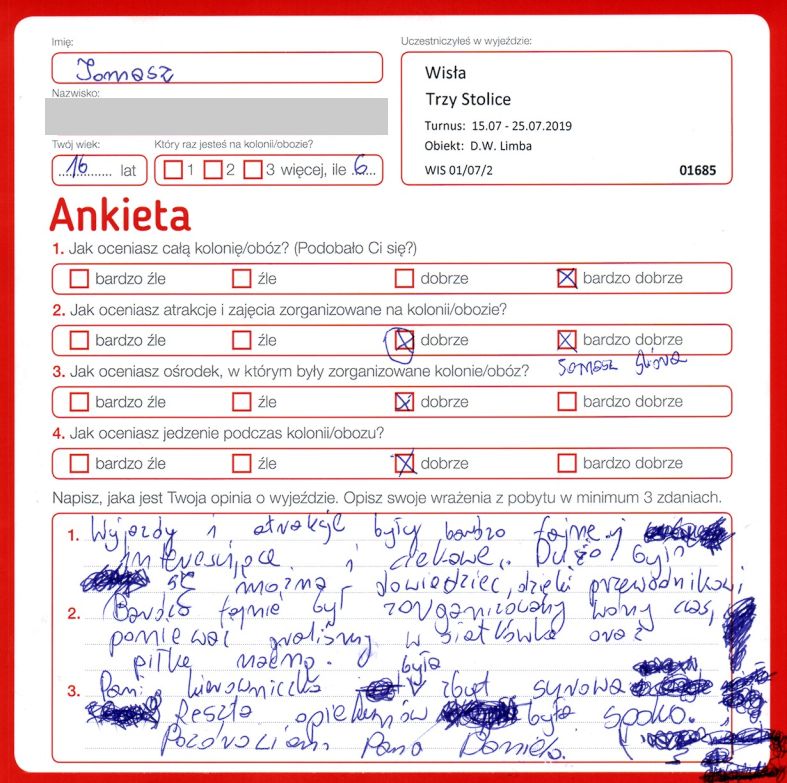 Imię:
Tomasz
Nazwisko:
Twój wiek:
16 lat
Który raz jesteś na kolonii/obozie?
1 2 3 więcej, ile 6
Uczestniczyłeś w wyjeździe:
Wisła
Trzy Stolice
Turnus: 15.07 - 25.07.2019
Obiekt: D.W. Limba
WIS 01/07/2 01685
Ankieta
1. Jak oceniasz całą kolonię/obóz? (Podobało Ci się?)
bardzo źle źle dobrze bardzo dobrze
2. Jak oceniasz atrakcje i zajęcia zorganizowane na kolonii/obozie?
bardzo źle źle dobrze bardzo dobrze
Tomasz
3. Jak oceniasz ośrodek, w którym były zorganizowane kolonie/obóz?
bardzo źle źle dobrze bardzo dobrze
4. Jak oceniasz jedzenie podczas kolonii/obozu?
bardzo źle źle dobrze bardzo dobrze
Napisz, jaka jest Twoja opinia o wyjeździe. Opisz swoje wrażenia z pobytu w minimum 3 zdaniach.
1. Wyjazdy i atrakcje były bardzo fajne,
interesujące i ciekawe. Dużo
się można dowiedzieć, dzięki przewodnikowi
2. Bardzo fajnie był zorganizowany wolny czas,
ponieważ graliśmy w siatkówkę oraz
piłkę nożną. była
3. Pani kierowniczka zbyt surowa
Reszta opiekunów była spoko.
Pozdrawiam Pana Daniela.